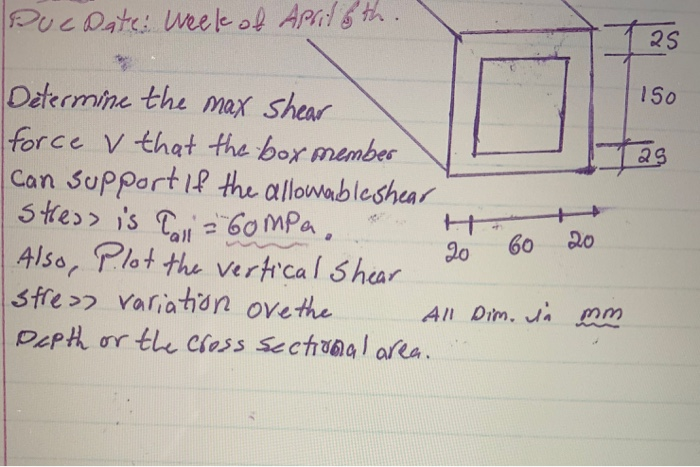 Due Date: Week of April 6th.
25
Determine the max shear
150
force V that the box member
25
can support if the allowable shear
stress is τall = 60 MPa.
20 60 20
Also, Plot the vertical shear
stress variation ove the
All Dim. in mm
Depth or the cross sectional area.